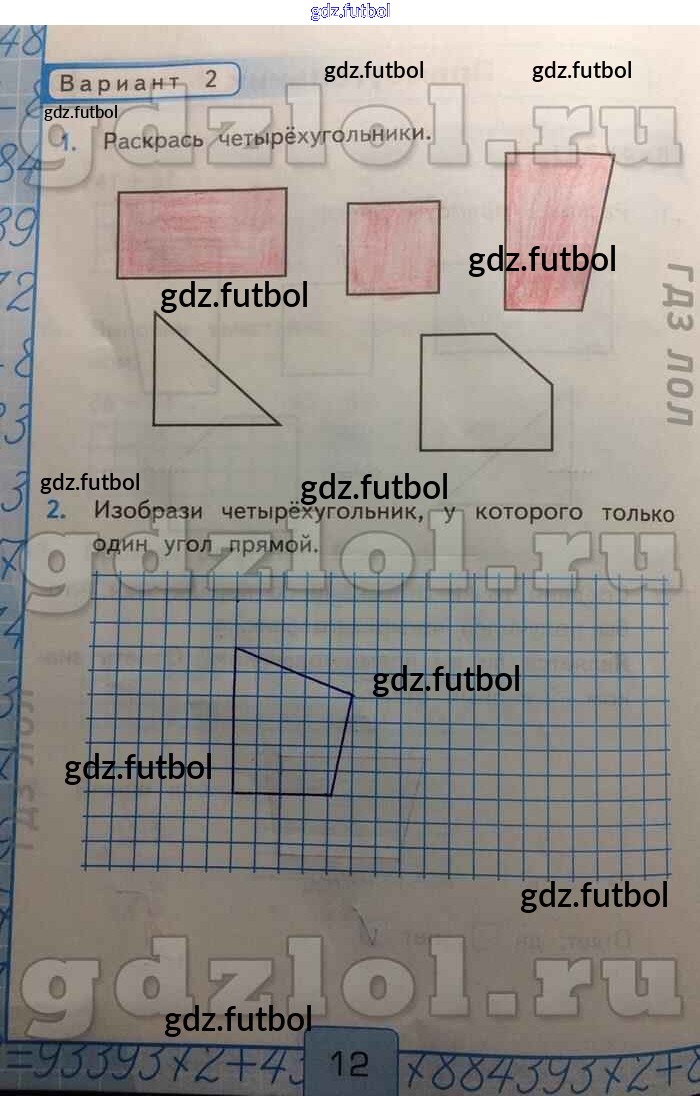 gdz.futbol
48
Вариант 2
gdz.futbol
gdz.futbol
gdz.futbol
gdzlol.ru
1. Раскрась четырёхугольники.
84
39
gdz.futbol
ГДЗ ЛОЛ
gdz.futbol
gdz.futbol
gdz.futbol
2. Изобрази четырёхугольник, у которого только
один угол прямой.
gdzlol.ru
gdz.futbol
gdz.futbol
ГДЗ ЛОЛ
gdz.futbol
gdzlol.ru
gdz.futbol
=93393×2+43
12
×884393×2+8